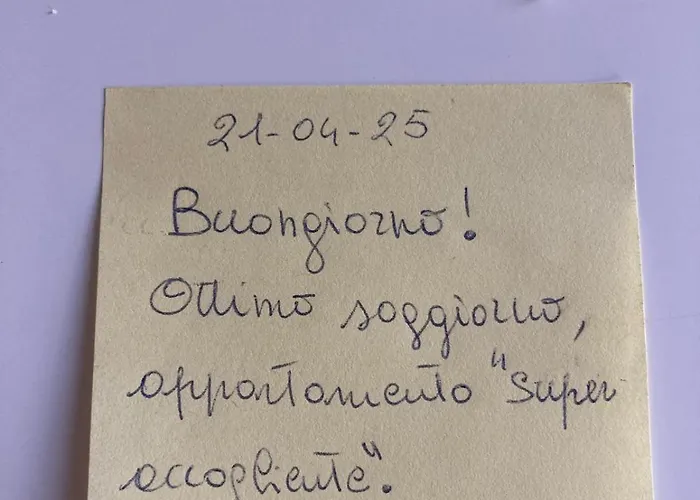 21-04-25
Buongiorno!
Ottimo soggiorno,
appartamento "Super
accogliente".